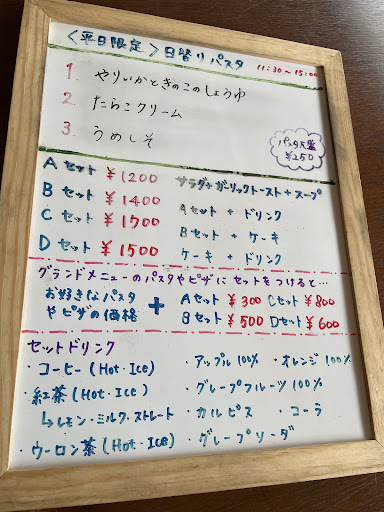 〈平日限定〉日替りパスタ 11:30~15:00
1. やりいかときのこのしょうゆ
2. たらこクリーム
3. うめしそ
パスタ大盛
¥250
Aセット ¥1200 サラダ+ガーリックトースト+スープ
Bセット ¥1400 Aセット + ドリンク
Cセット ¥1700 Bセット + ケーキ
Dセット ¥1500 ケーキ + ドリンク
グランドメニューのパスタやピザにセットをつけると…
お好きなパスタ
やピザの価格
+
Aセット ¥300 Cセット ¥800
Bセット ¥500 Dセット ¥600
セットドリンク
・コーヒー(Hot・Ice) ・アップル100% ・オレンジ100%
・紅茶(Hot・Ice) ・グレープフルーツ100%
↳レモン・ミルク・ストレート ・カルピス ・コーラ
・ウーロン茶(Hot・Ice) ・グレープソーダ